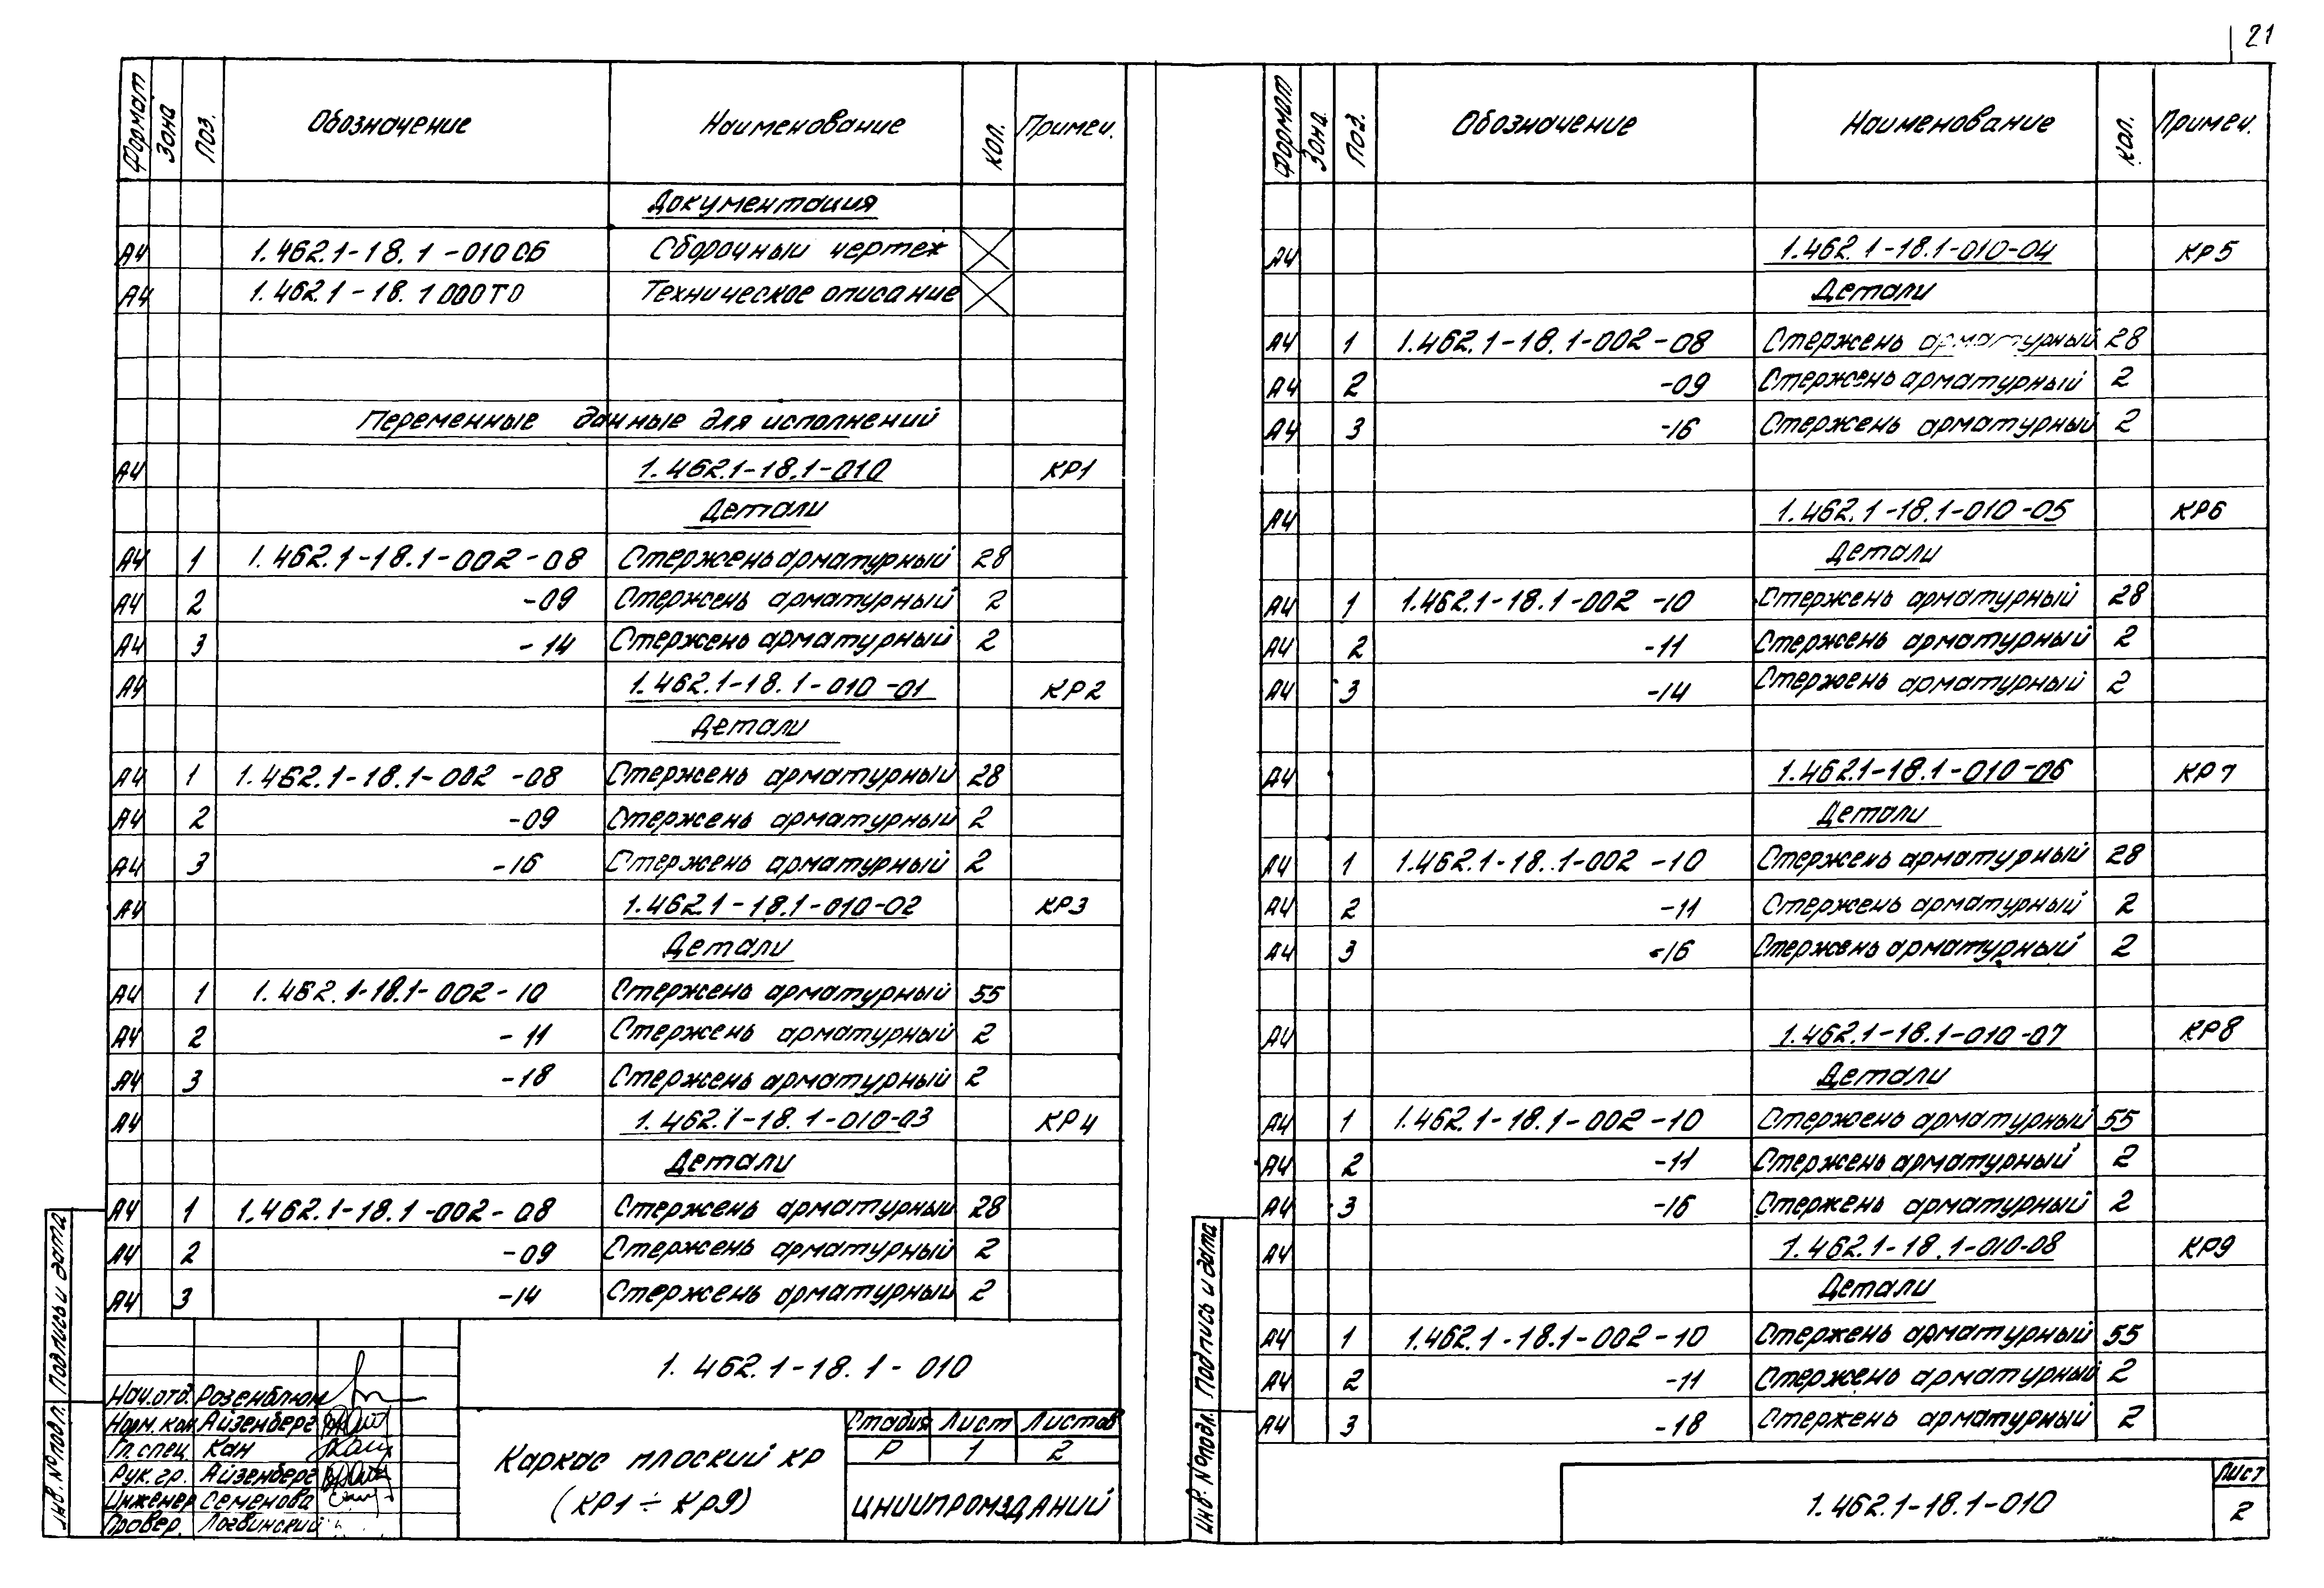 21
Формат Зона Поз. Обозначение Наименование Кол. Примеч.
Документация
А4 1.462.1-18.1-010СБ Сборочный чертеж
А4 1.462.1-18.1000ТО Техническое описание
Переменные данные для исполнений
А4 1.462.1-18.1-010 КР1
Детали
А4 1 1.462.1-18.1-002-08 Стержень арматурный 28
А4 2 -09 Стержень арматурный 2
А4 3 -14 Стержень арматурный 2
А4 1.462.1-18.1-010-01 КР2
Детали
А4 1 1.462.1-18.1-002-08 Стержень арматурный 28
А4 2 -09 Стержень арматурный 2
А4 3 -16 Стержень арматурный 2
А4 1.462.1-18.1-010-02 КР3
Детали
А4 1 1.462.1-18.1-002-10 Стержень арматурный 55
А4 2 -11 Стержень арматурный 2
А4 3 -18 Стержень арматурный 2
А4 1.462.1-18.1-010-03 КР4
Детали
А4 1 1.462.1-18.1-002-08 Стержень арматурный 28
А4 2 -09 Стержень арматурный 2
А4 3 -14 Стержень арматурный 2
1.462.1-18.1-010
Нач.отд. Розенблюм
Норм.кон Айзенберг
Гл.спец. Кан
Рук.гр. Айзенберг
Инженер Семенова
Провер. Логвинский
Каркас плоский КР
(КР1 ÷ КР9)
Стадия Лист Листов
Р 1 2
ЦНИИПРОМЗДАНИЙ
Инв.№подл. Подпись и дата
Формат Зона Поз. Обозначение Наименование Кол. Примеч.
А4 1.462.1-18.1-010-04 КР5
Детали
А4 1 1.462.1-18.1-002-08 Стержень арматурный 28
А4 2 -09 Стержень арматурный 2
А4 3 -16 Стержень арматурный 2
А4 1.462.1-18.1-010-05 КР6
Детали
А4 1 1.462.1-18.1-002-10 Стержень арматурный 28
А4 2 -11 Стержень арматурный 2
А4 3 -14 Стержень арматурный 2
А4 1.462.1-18.1-010-06 КР7
Детали
А4 1 1.462.1-18.1-002-10 Стержень арматурный 28
А4 2 -11 Стержень арматурный 2
А4 3 -16 Стержень арматурный 2
А4 1.462.1-18.1-010-07 КР8
Детали
А4 1 1.462.1-18.1-002-10 Стержень арматурный 55
А4 2 -11 Стержень арматурный 2
А4 3 -16 Стержень арматурный 2
А4 1.462.1-18.1-010-08 КР9
Детали
А4 1 1.462.1-18.1-002-10 Стержень арматурный 55
А4 2 -11 Стержень арматурный 2
А4 3 -18 Стержень арматурный 2
1.462.1-18.1-010
Лист
2
Инв.№подл. Подпись и дата